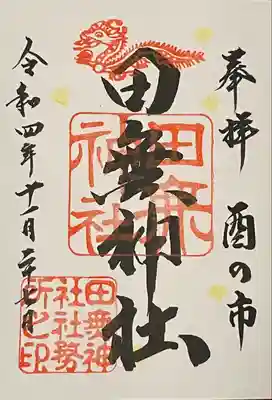 奉拝 酉の市
田無神社
田無
神社
令和四年十一月二十八日
田無神
社社務
所之印